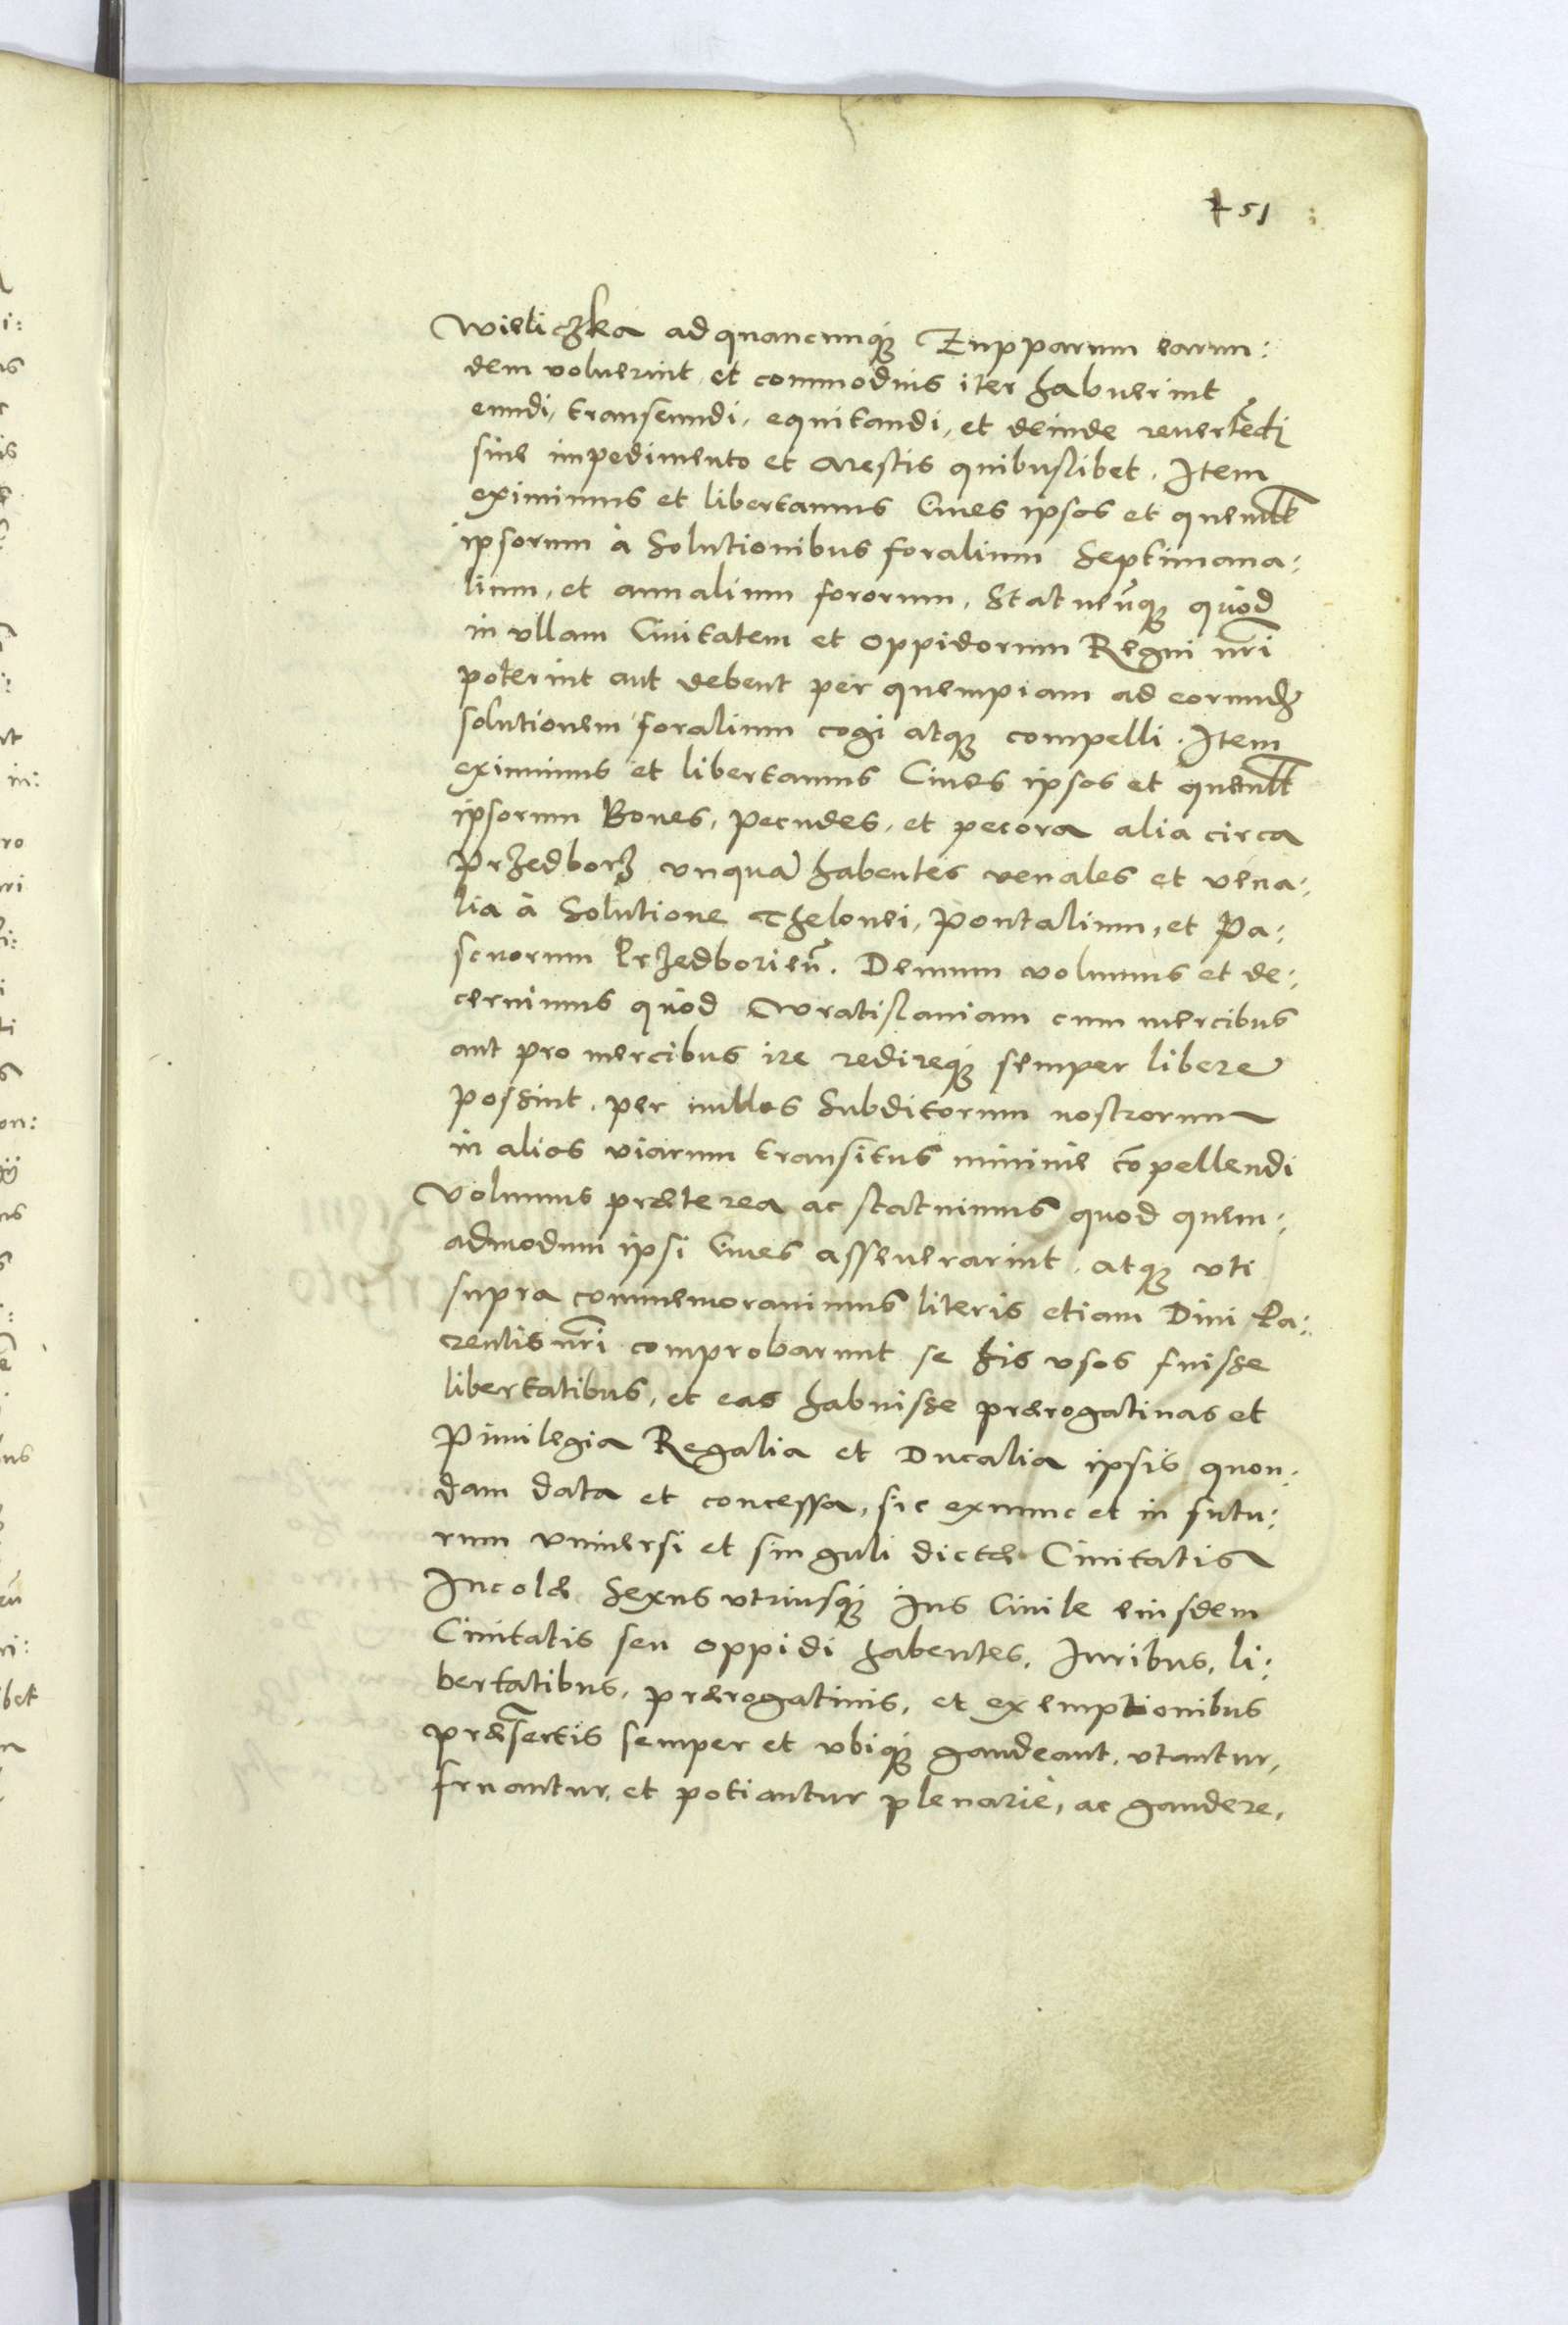 51
Wieliczka ad quancunq3 Zupparum earun:
dem voluerint et commodius iter habuerint
eundi, transeundi, equitandi, et deinde reuertēdi
sine impedimento et arestis quibuslibet. Item
eximimus et libertamus Ciues ipsos et quemlt
ipsorum à Solutionibus foralium Septimana:
lium, et annalium fororum, Statueñq3 quòd
in vllam Ciuitatem et oppidorum Regni nrī
poterint aut debent per quempiam ad eorund3
solutionem foralium cogi atq3 compelli. Item
eximimus et libertamus Ciues ipsos et quemlt
ipsorum Boues, pecudes, et pecora alia circa
Przedborz vnquā habentes venales et vena:
lia à Solutione Thelonei, pontalium, et Pa:
scuorum Przedborieñ. Demum volumus et de:
cernimus quòd Wratislauiam cum mercibus
aut pro mercibus ire redireq3 semper liberè
possint. per nullos Subditorum nostrorum
in alios viarum transitus minime cōpellendi
Volumus præterea ac statuimus quod quem:
admodum ipsi Ciues asseuerarint. atq3 vti
supra commemorauimus literis etiam Diui Pa:
rentis nrī comprobarunt se his vsos fuisse
libertatibus, et eas habuisse prærogatiuas et
Priuilegia Regalia et Ducalia ipsis quon:
dam data et concessa, sic exnunc et in futu:
rum vniuersi et singuli dictæ Ciuitatis
Incolæ Sexus vtriusq3 Jus Ciuile eiusdem
Ciuitatis seu oppidi habentes, Iuribus, li:
bertatibus, prærogatiuis, et exemptionibus
præsertis semper et vbiq3 gaudeant, vtantur,
fruantur, et potiantur plenariè, ac gaudere,